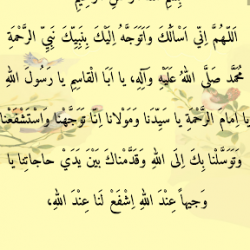 اَللّـهُمَّ اِنّي اَسْاَلُكَ وَاَتَوَجَّهُ اِلَيْكَ بِنَبِيِّكَ نَبِيِّ الرَّحْمَةِ
مُحَمَّد صَلَّى اللهُ عَلَيْهِ وَآلِهِ، يا اَبَا الْقاسِمِ يا رَسُولَ اللهِ
يا اِمامَ الرَّحْمَةِ يا سَيِّدَنا وَمَوْلانا اِنّا تَوَجَّهْنا وَاسْتَشْفَعْنا
وَتَوَسَّلْنا بِكَ اِلَى اللهِ وَقَدَّمْناكَ بَيْنَ يَدَيْ حاجاتِنا يا
وَجيهاً عِنْدَ اللهِ اِشْفَعْ لَنا عِنْدَ اللهِ،